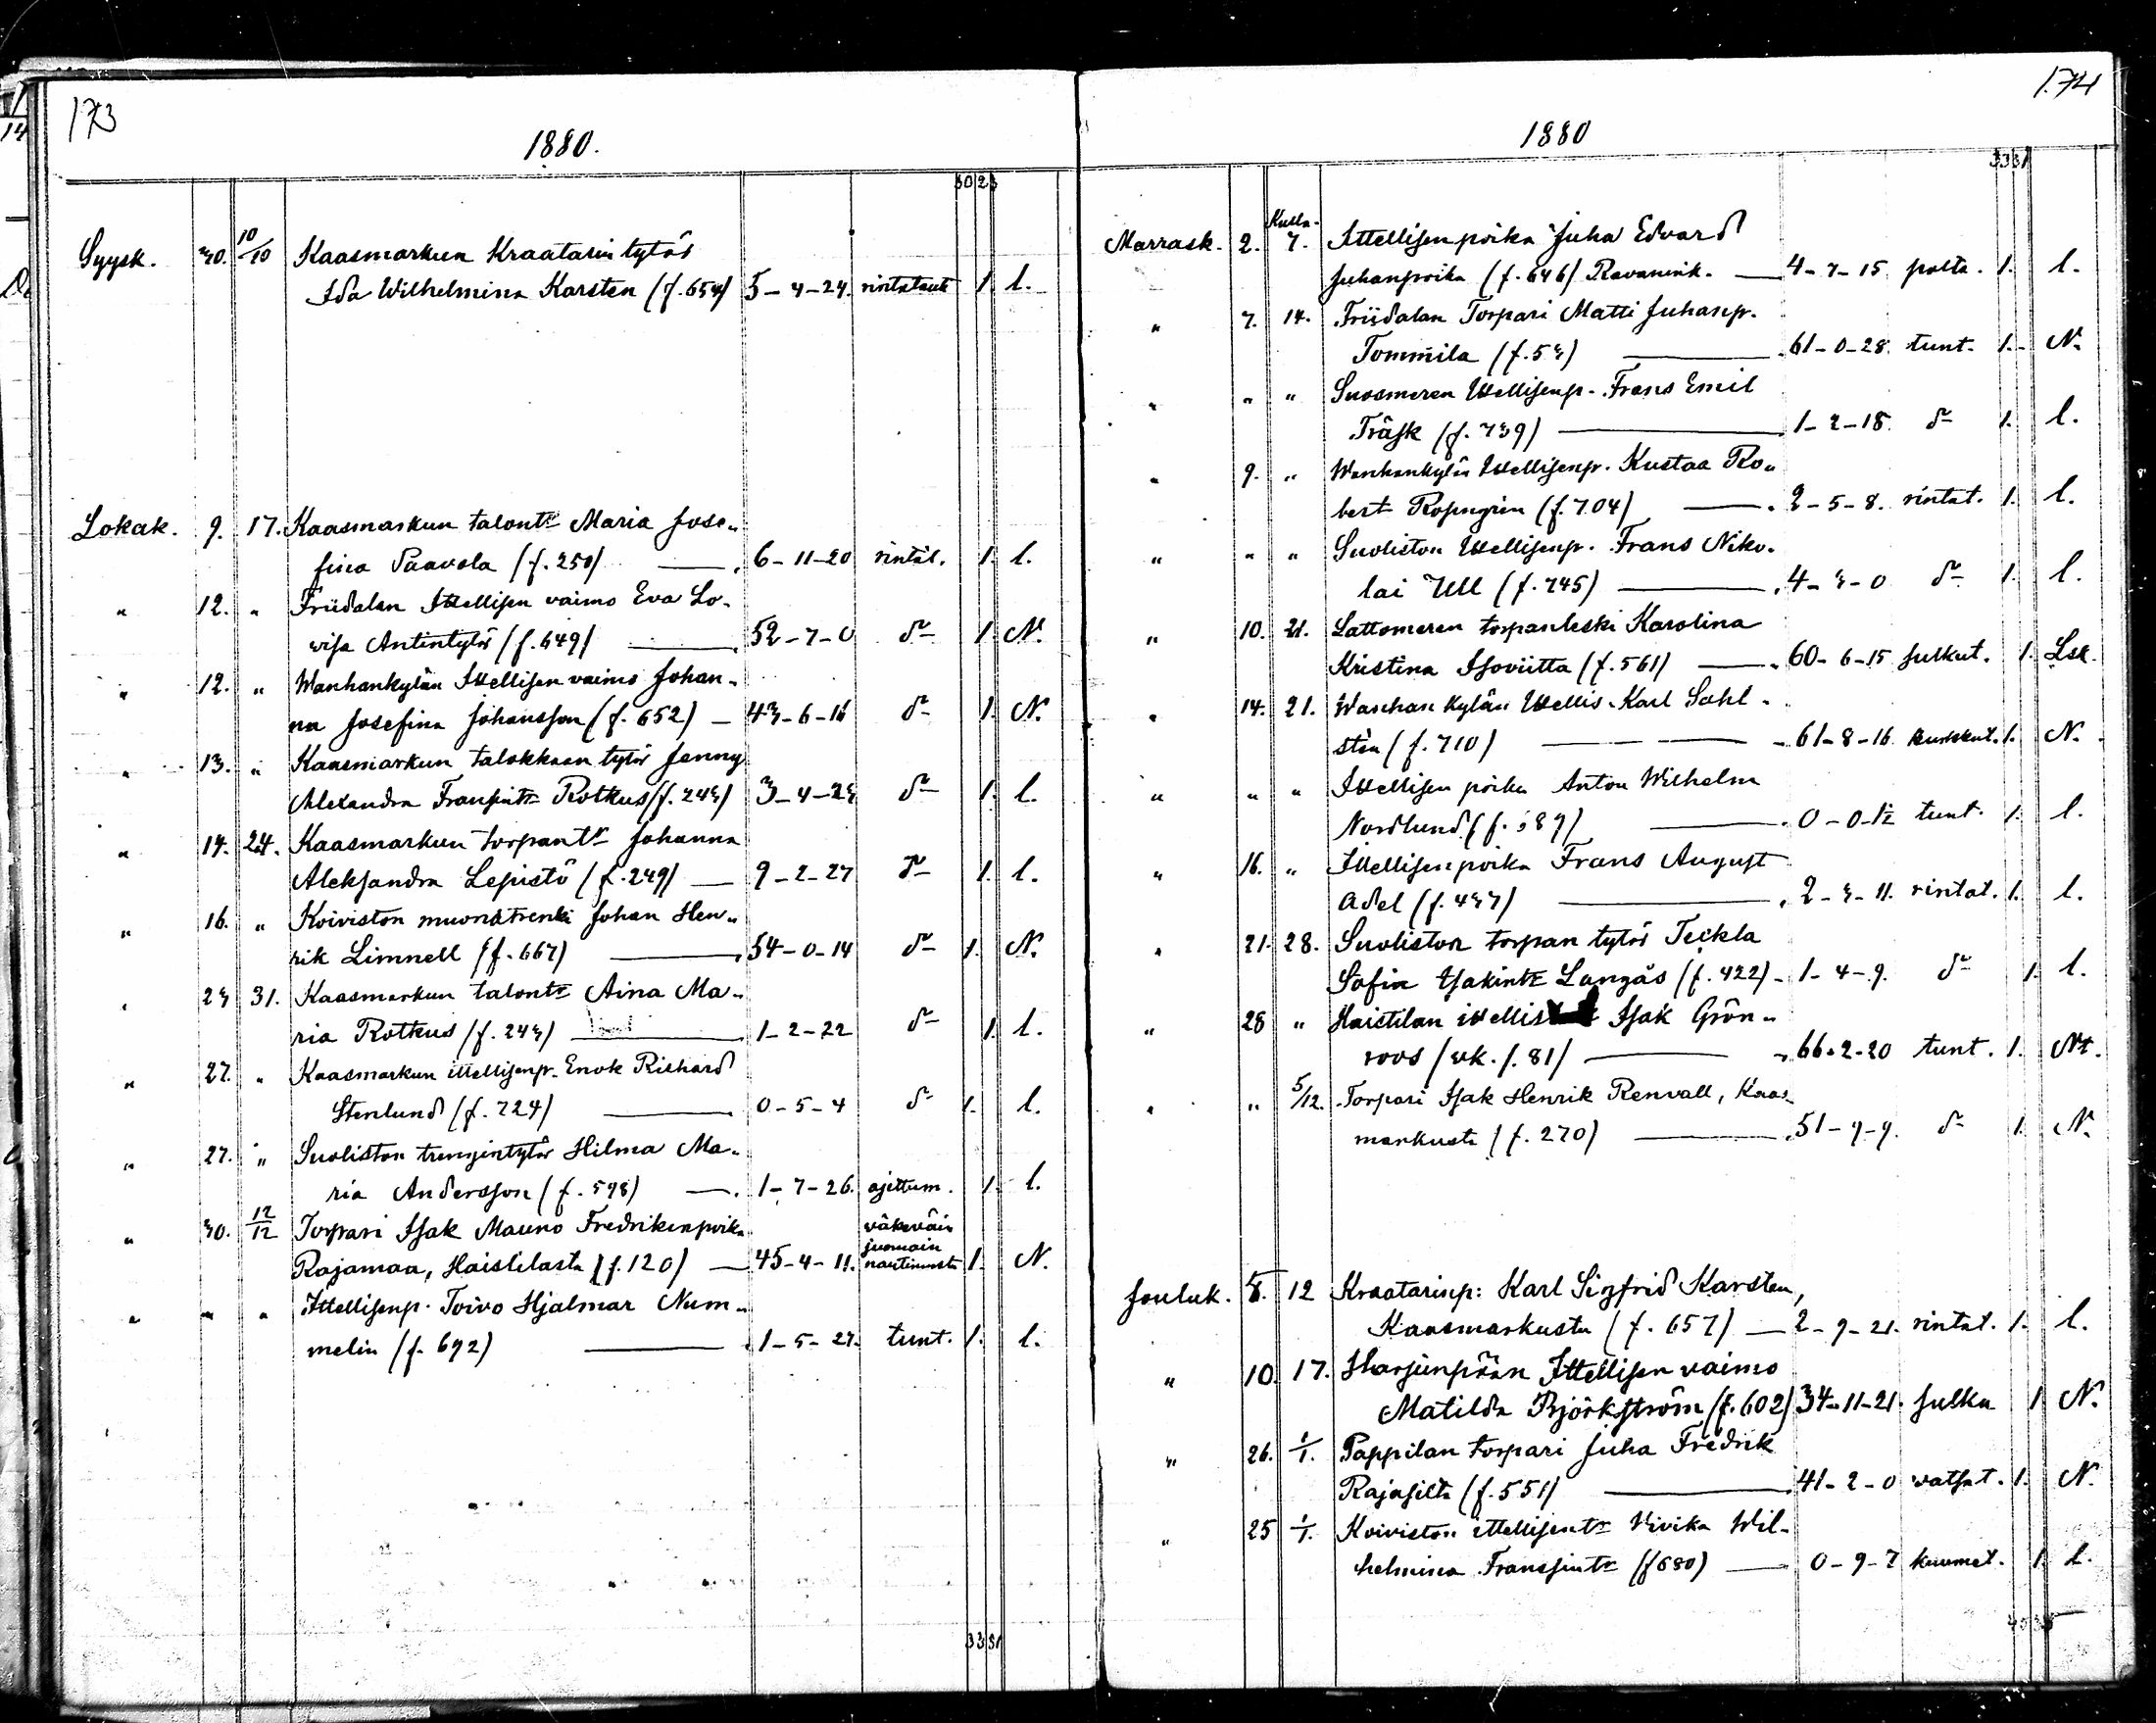 173
1880.
30 23
Syysk. 30. 10/10 Kaasmarkun Kraatarin tytär
Ida Wilhelmina Karsten (f. 654) 5-4-24. rintataut 1 l.
Lokak. 9. 17. Kaasmarkun talont:r Maria Jose„
fina Paavola (f. 250) 6-11-20 rintat. 1. l.
" 12. " Friidalan Ittellisen vaimo Eva Lo-
visa Antintytär (f. 649) 52-7-0 d:o 1. N.
" 12. " Wanhankylän Ittellisen vaimo Johan-
na Josefina Johansson (f. 652) 43-6-16 d:o 1. N.
" 13. " Kaasmarkun talokkaan tytär Jenny
Alexandra Fransint:r Rotkus (f. 243) 3-4-23 d:o 1. l.
" 14. 24. Kaasmarkun torpant:r Johanna
Aleksandra Lepistö (f. 249) 9-2-27 d:o 1. l.
" 16. " Koiviston muonatrenki Johan Hen„
rik Limnell (f. 667) 54-0-14 d:o 1. N.
" 23 31. Kaasmarkun talont:r Aina Ma„
ria Rotkus (f. 243) 1-2-22 d:o 1. l.
" 27. " Kaasmarkun ittellisenp. Enok Richard
Stenlund (f. 724) 0-5-4 d:o 1. l.
" 27. " Suoliston trengintytär Hilma Ma„
ria Andersson (f. 598) 1-7-26. ajettum. 1. l.
" 30. 12/12 Torpari Isak Mauno Fredrikinpoika väkeväin
juomain
Rajamaa, Haistilasta (f. 120) 45-4-11. nautinnosta 1. N.
" " " Ittellisenp. Toivo Hjalmar Num„
melin (f. 692) 1-5-27. tunt. 1. l.
33 31
174
1880
33 31
Kulla.
Marrask. 2. 7. Ittellisen poika Juha Edvard
Juhanpoika (f. 646) Ravanink. 4-7-15 polta. 1. l.
" 7. 14. Friidalan Torpari Matti Juhanp.
Tommila (f. 53) 61-0-28. tunt. 1. N.
" " " Suosmeren Ittellisenp. Frans Emil
Träsk (f. 739) 1-2-18. d:o 1. l.
" 9. " Wanhankylän Ittellisenp. Kustaa Ro„
bert Rosngrén (f. 704) 2-5-8. rintat. 1. l.
" " " Suoliston Ittellisenp. Frans Niko.
lai Ull (f. 745) 4-3-0 d:o 1. l.
" 10. 21. Lattomeren torpanleski Karolina
Kristina Isoviitta (f. 561) 60-6-15 julkut. 1. Lsk.
" 14. 21. Wanhan kylän Ittellis. Karl Sahl-
stén (f. 710) 61-8-16 kurkkut. 1. N.
" " " Ittellisen poika Anton Wilhelm
Nordlund (f. 589) 0-0-1/2 tunt. 1. l.
" 16. " Ittellisenpoika Frans August
Adel (f. 437) 2-3-11. rintat. 1. l.
" 21. 28. Suoliston torpan tytär Teckla
Sofia Isakint:r Langås (f. 422) 1-4-9. d:o 1. l.
" 28 " Haistilan ittellis Isak Grön„
roos (vk. f. 81) 66-2-20 tunt. 1. Nt.
" " 5/12. Torpari Isak Henrik Renvall, Kaas
markusta (f. 270) 51-9-9. d:o 1. N.
Jouluk. 8. 12 Kraatarinp: Karl Sigfrid Karsten,
Kaasmarkusta (f. 657) 2-9-21. rintat. 1. l.
" 10. 17. Harjunpään Ittellisen vaimo
Matilda Björkström (f. 602) 34-11-21. julku 1 N.
" 26. 1/1. Pappilan torpari Juha Fredrik
Rajasilta (f. 551) 41-2-0 watsat. 1. N.
" 25 1/1. Koiviston ittellisent:r Vivika Wil-
helmina Fransint:r (f 680) 0-9-7 kuumet. 1. l.